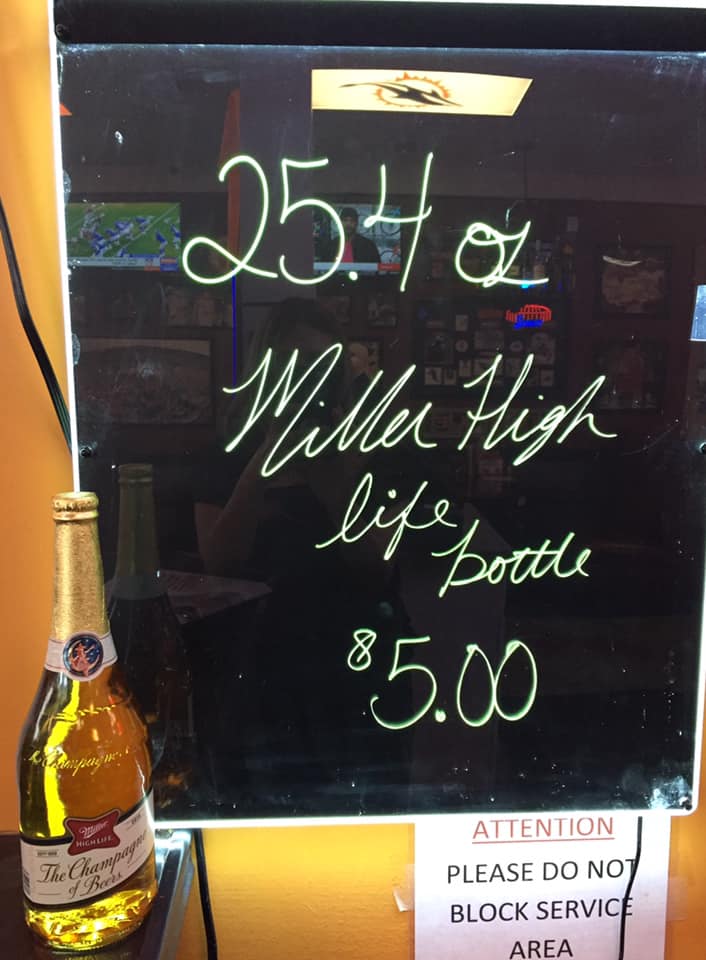 25.4 oz
Miller High
life
bottle
$5.00
Miller
HIGH LIFE
The Champagne
of Beers
ATTENTION
PLEASE DO NOT
BLOCK SERVICE
AREA